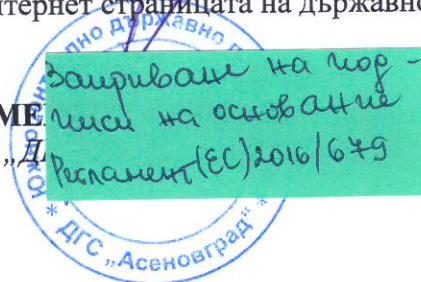 нтернет страницата на държавно
МЕ
„Д
Заириване на под-
писи на основание
Регламент(ЕС)2016/679
ДЪРЖАВНО
* ДГС „Асеновград“ *